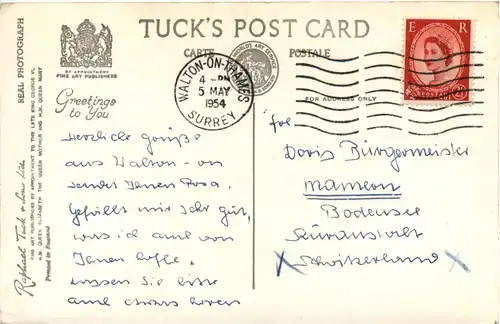 TUCK'S POST CARD
CARTE POSTALE
REAL PHOTOGRAPH
BY APPOINTMENT
FINE ART PUBLISHERS
Greetings
to You
FOR ADDRESS ONLY
WALTON-ON-THAMES
4 - PM
5 MAY
1954
SURREY
E R
POSTAGE
Raphael Tuck & Sons Ltd.
FINE ART PUBLISHERS BY APPOINTMENT TO THE LATE KING GEORGE VI,
H.M. QUEEN ELIZABETH THE QUEEN MOTHER AND H.M. QUEEN MARY
Printed in England
Herzliche Grüße
aus Walton-on
sendet Ihnen Rosa.
Gefällt mir sehr gut,
was ich auch von
Ihnen hoffe.
Lassen Sie bitte
auch etwas hören
Doris Bürgermeister
Mamern
Bodensee
Kuranstalt
Schwitzerland